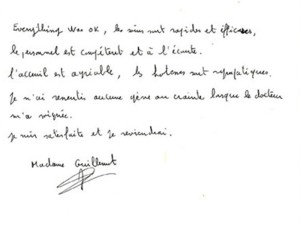 Everything was OK, les soins sont rapides et efficaces,
le personnel est compétent et à l'écoute.
l'acceuil est agréable, les hotesses sont sympatiques.
Je n'ai ressentis aucune gène ou crainte lorsque le docteur
m'a soignée.
Je suis satisfaite et je reviendrai.
Madame Guillemot